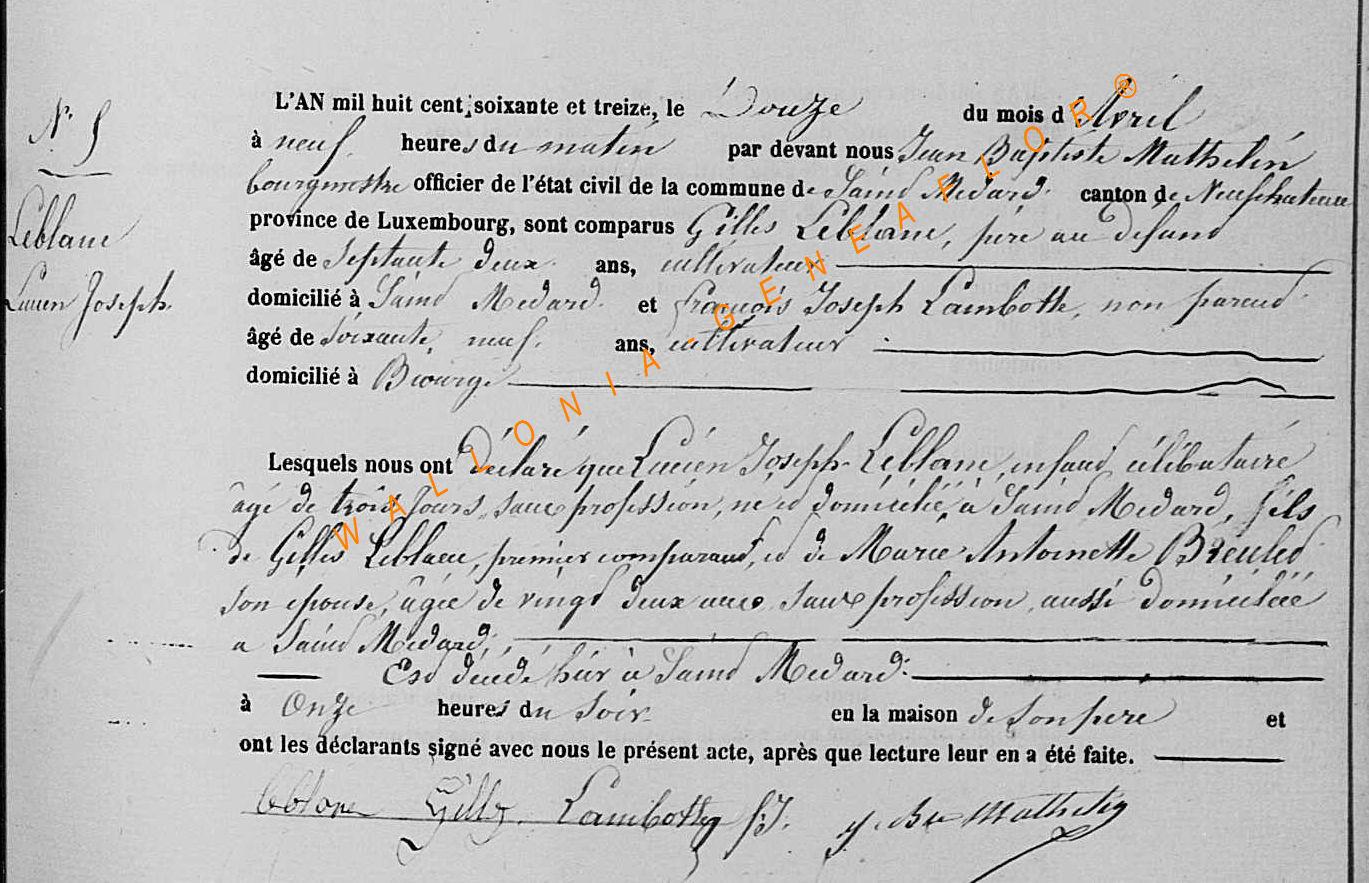 N° 5
Leblanc
Lucien Joseph
L'AN mil huit cent soixante et treize, le Douze du mois d'Avril
à neuf heures du matin par devant nous Jean Baptiste Mathelin
bourgmestre officier de l'état civil de la commune de Saint Médard canton de Neufchateau
province de Luxembourg, sont comparus Gilles Leblanc, père au défunt
âgé de Septante deux ans, cultivateur
domicilié à Saint Médard et françois Joseph Lambotte, non parent
âgé de Soixante neuf ans, cultivateur
domicilié à Biourge
Lesquels nous ont déclaré que Lucien Joseph Leblanc, enfant célibataire
âgé de trois jours, sans profession, né et domicilié à Saint Médard, fils
de Gilles Leblanc, premier comparant, et de Marie Antoinette
son épouse, âgée de vingt deux ans, sans profession, aussi domiciliée
a Saint Médard,
Est décédé hier à Saint Médard
à Onze heures du Soir en la maison de son père et
ont les déclarants signé avec nous le présent acte, après que lecture leur en a été faite.
leblanc Gilles Lambotte f.J. J. Bte Mathelin
WALLONIA-GENEAFLOR®